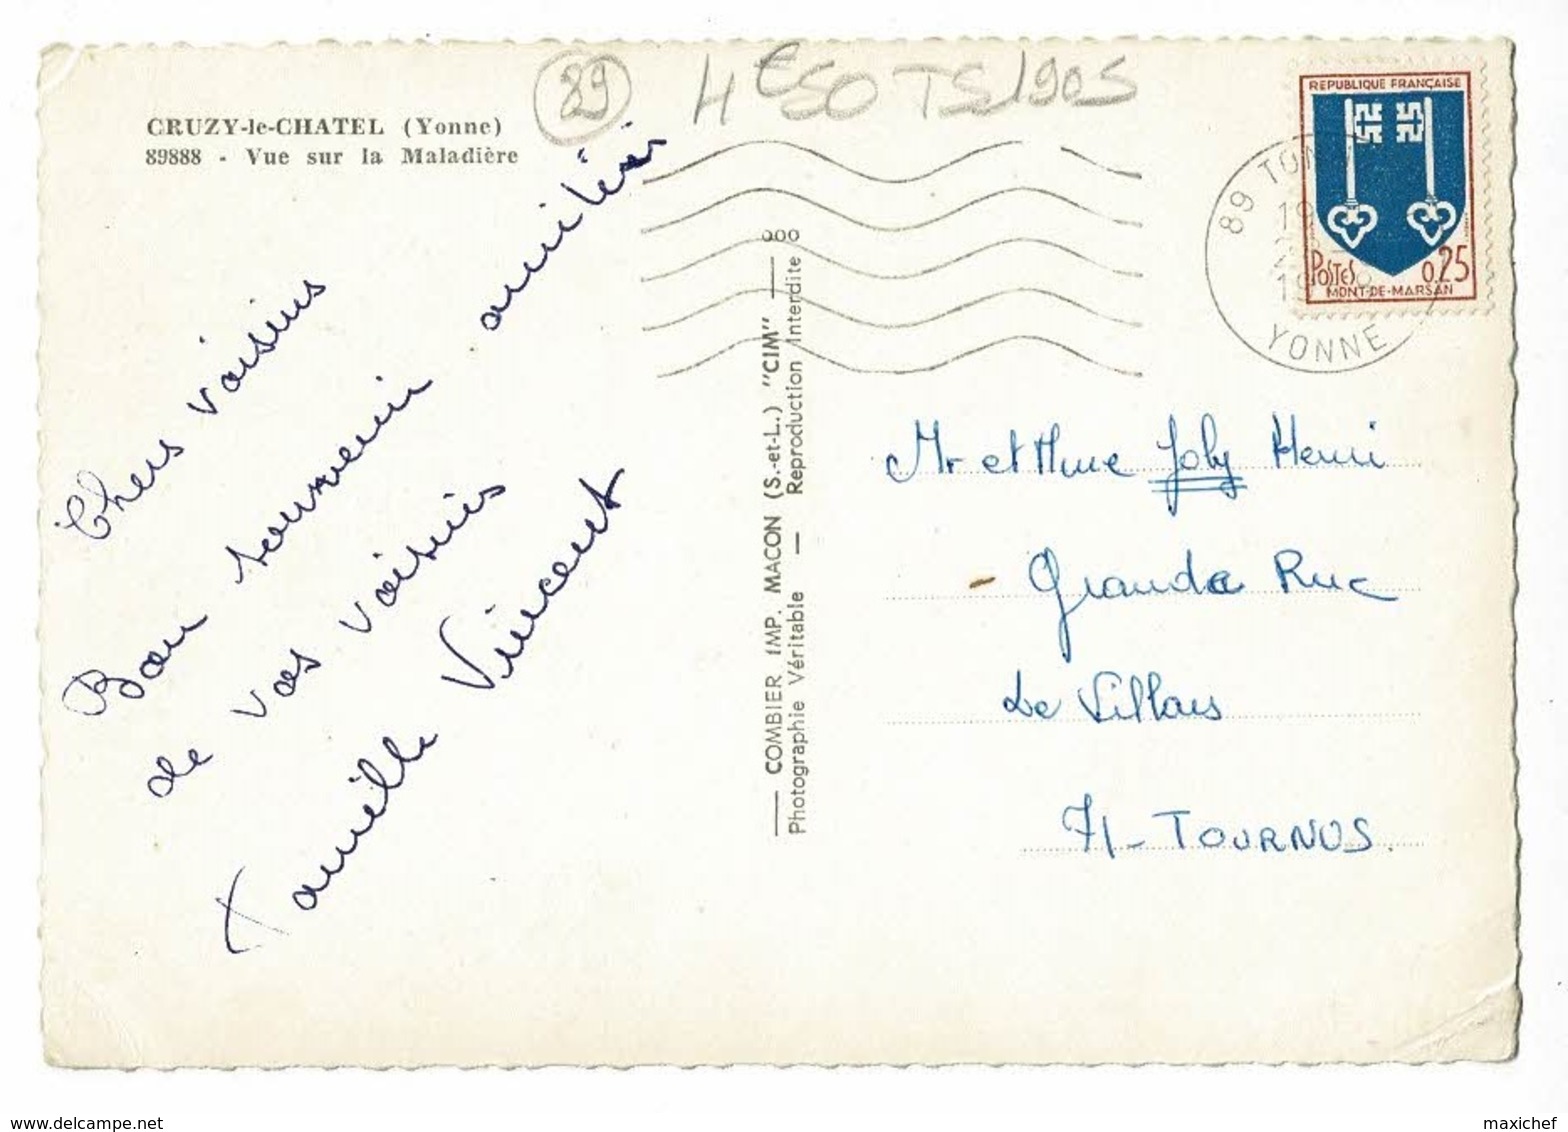 CRUZY-le-CHATEL (Yonne)
89888 - Vue sur la Maladière
89
4€50 TS1905
REPUBLIQUE FRANÇAISE
POSTES 0,25
MONT-DE-MARSAN
89
YONNE
Chers voisins
Bon souvenir amitiés
de vos voisins
famille Vincent
COMBIER IMP. MACON (S.-et-L.) "CIM"
Photographie Véritable — Reproduction Interdite
Mr et Mme Joly Henri
- Grande Rue
de Villars
71 - TOURNUS.
www.delcampe.net
maxichef